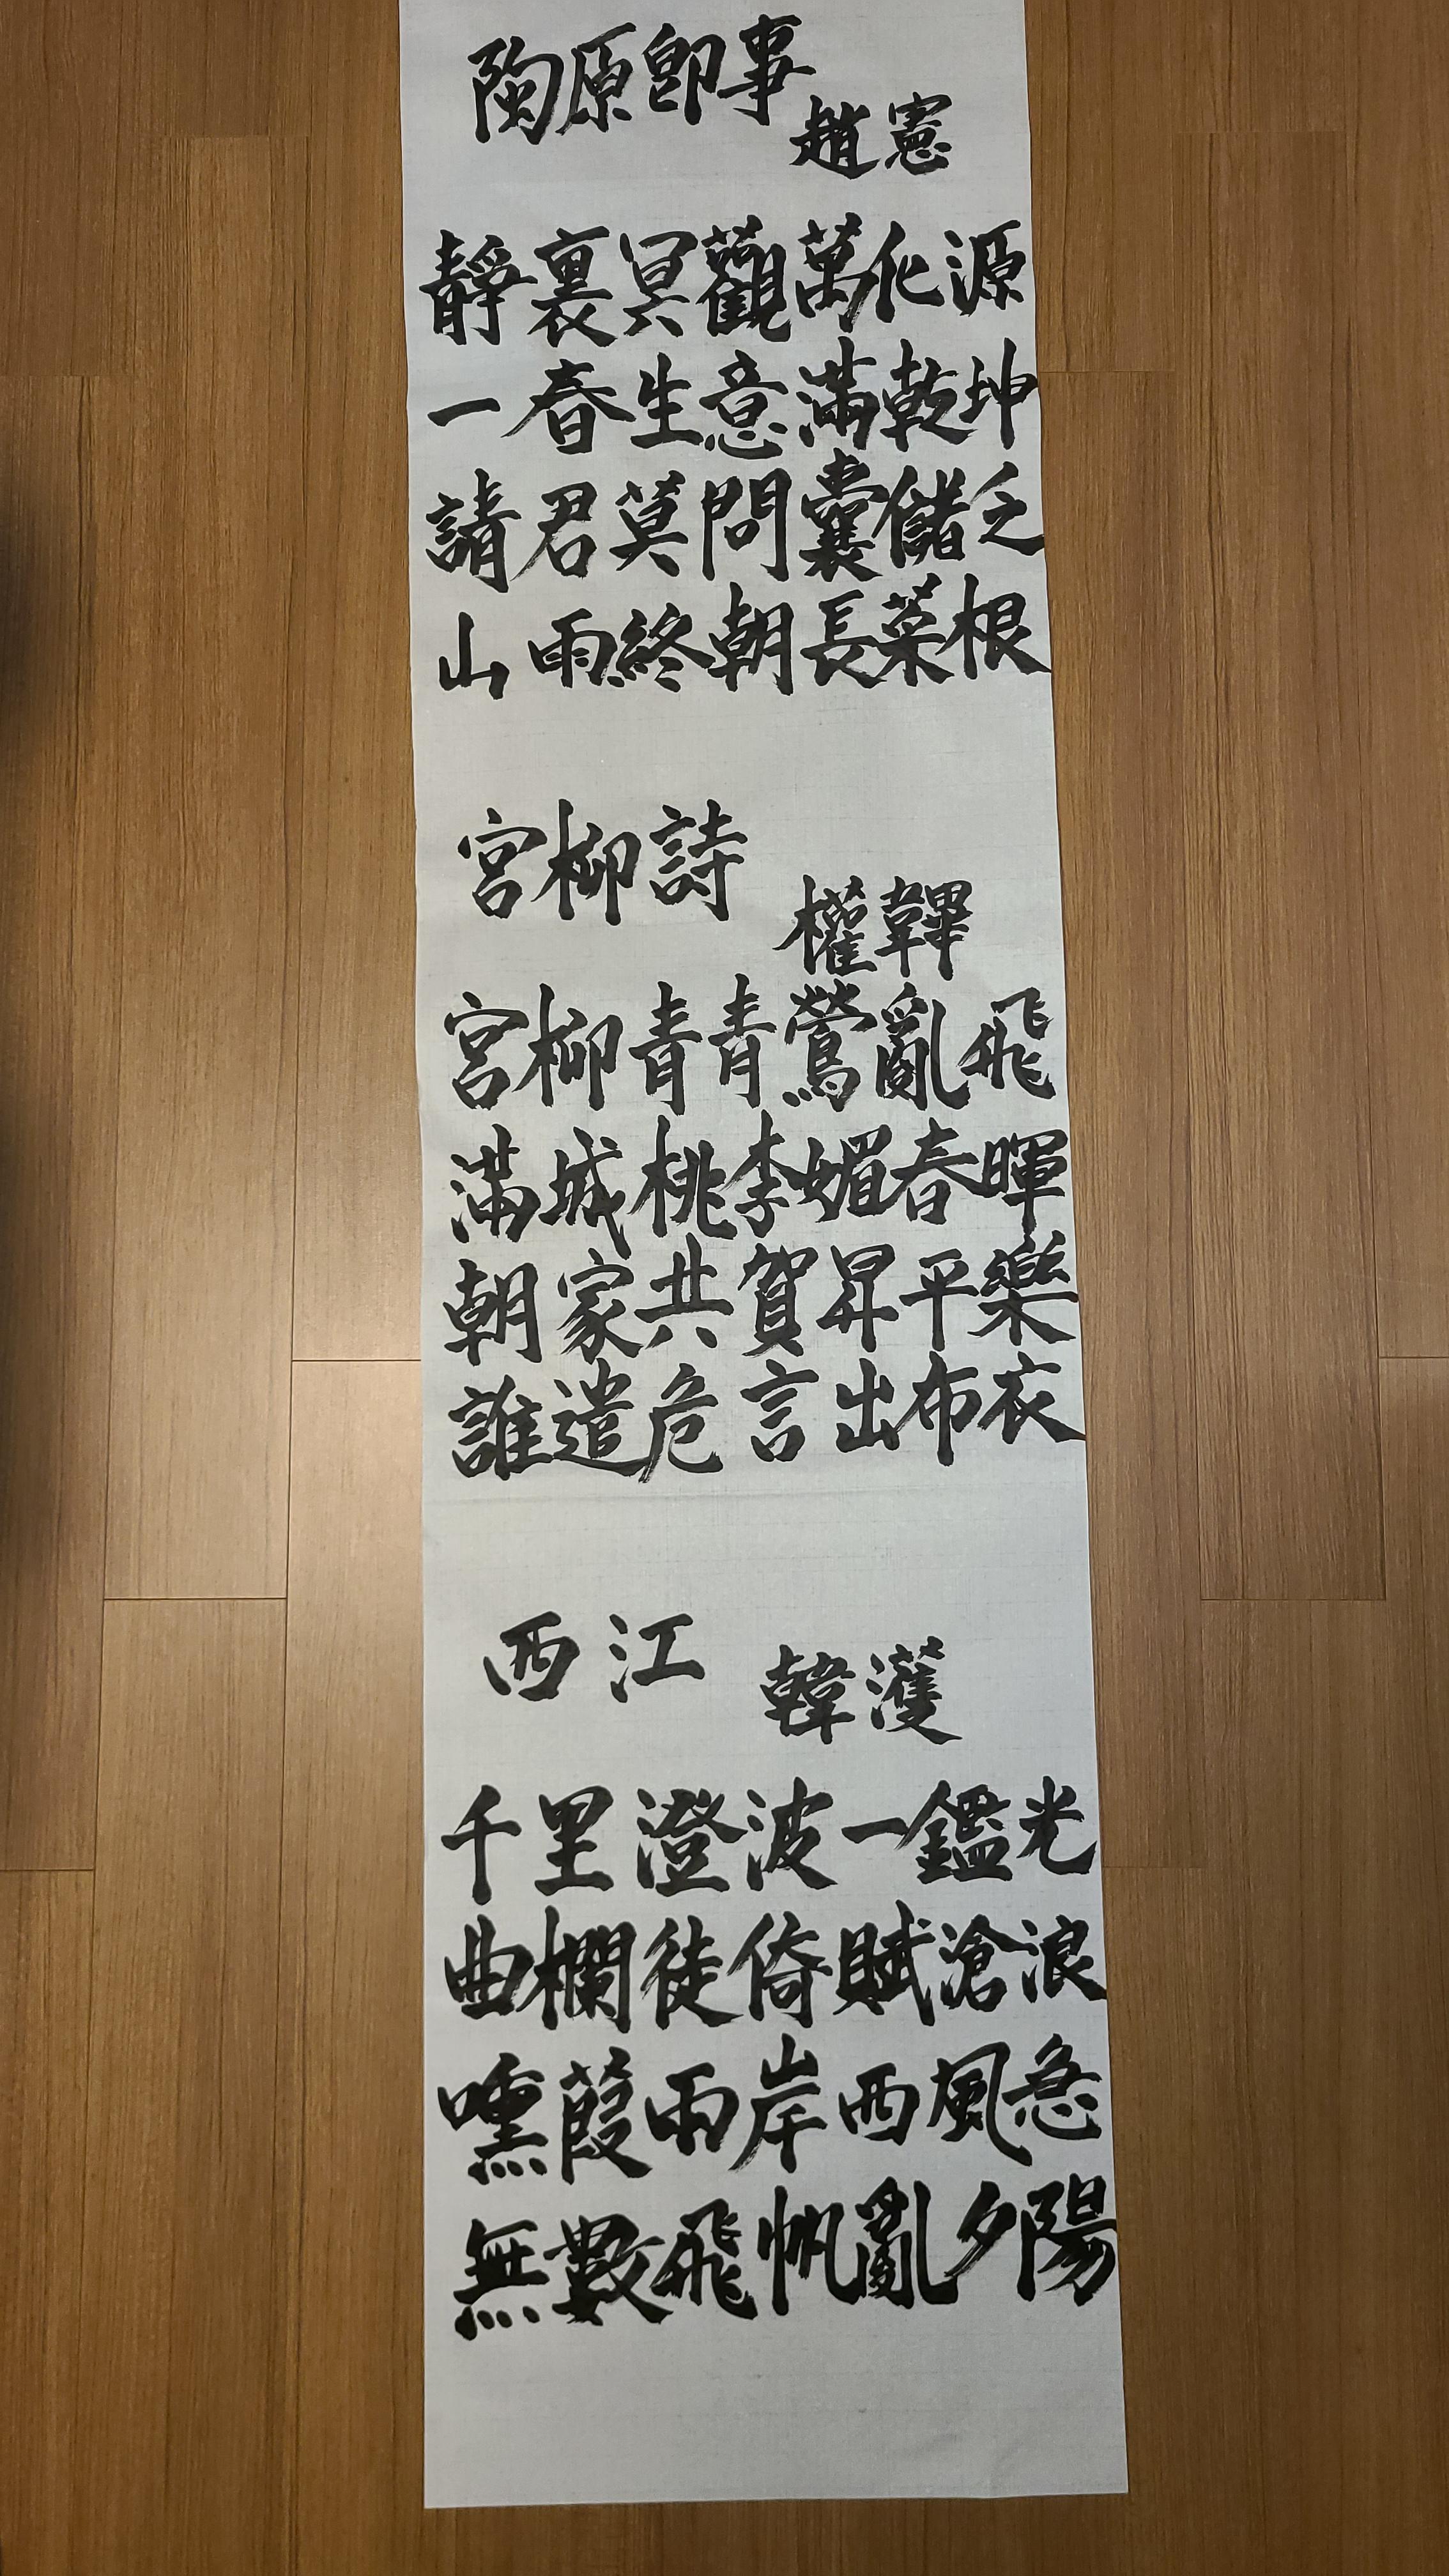 陶原卽事
趙憲
靜裏冥觀萬化源
一春生意滿乾坤
請君莫問囊儲乏
山雨終朝長菜根
宮柳詩
權韠
宮柳青青鶯亂飛
滿城桃李媚春暉
朝家共賀昇平樂
誰遣危言出布衣
西江
韓濩
千里澄波一鑑光
曲欄徒倚賦滄浪
嚑葭雨岸西風急
無數飛帆亂夕陽